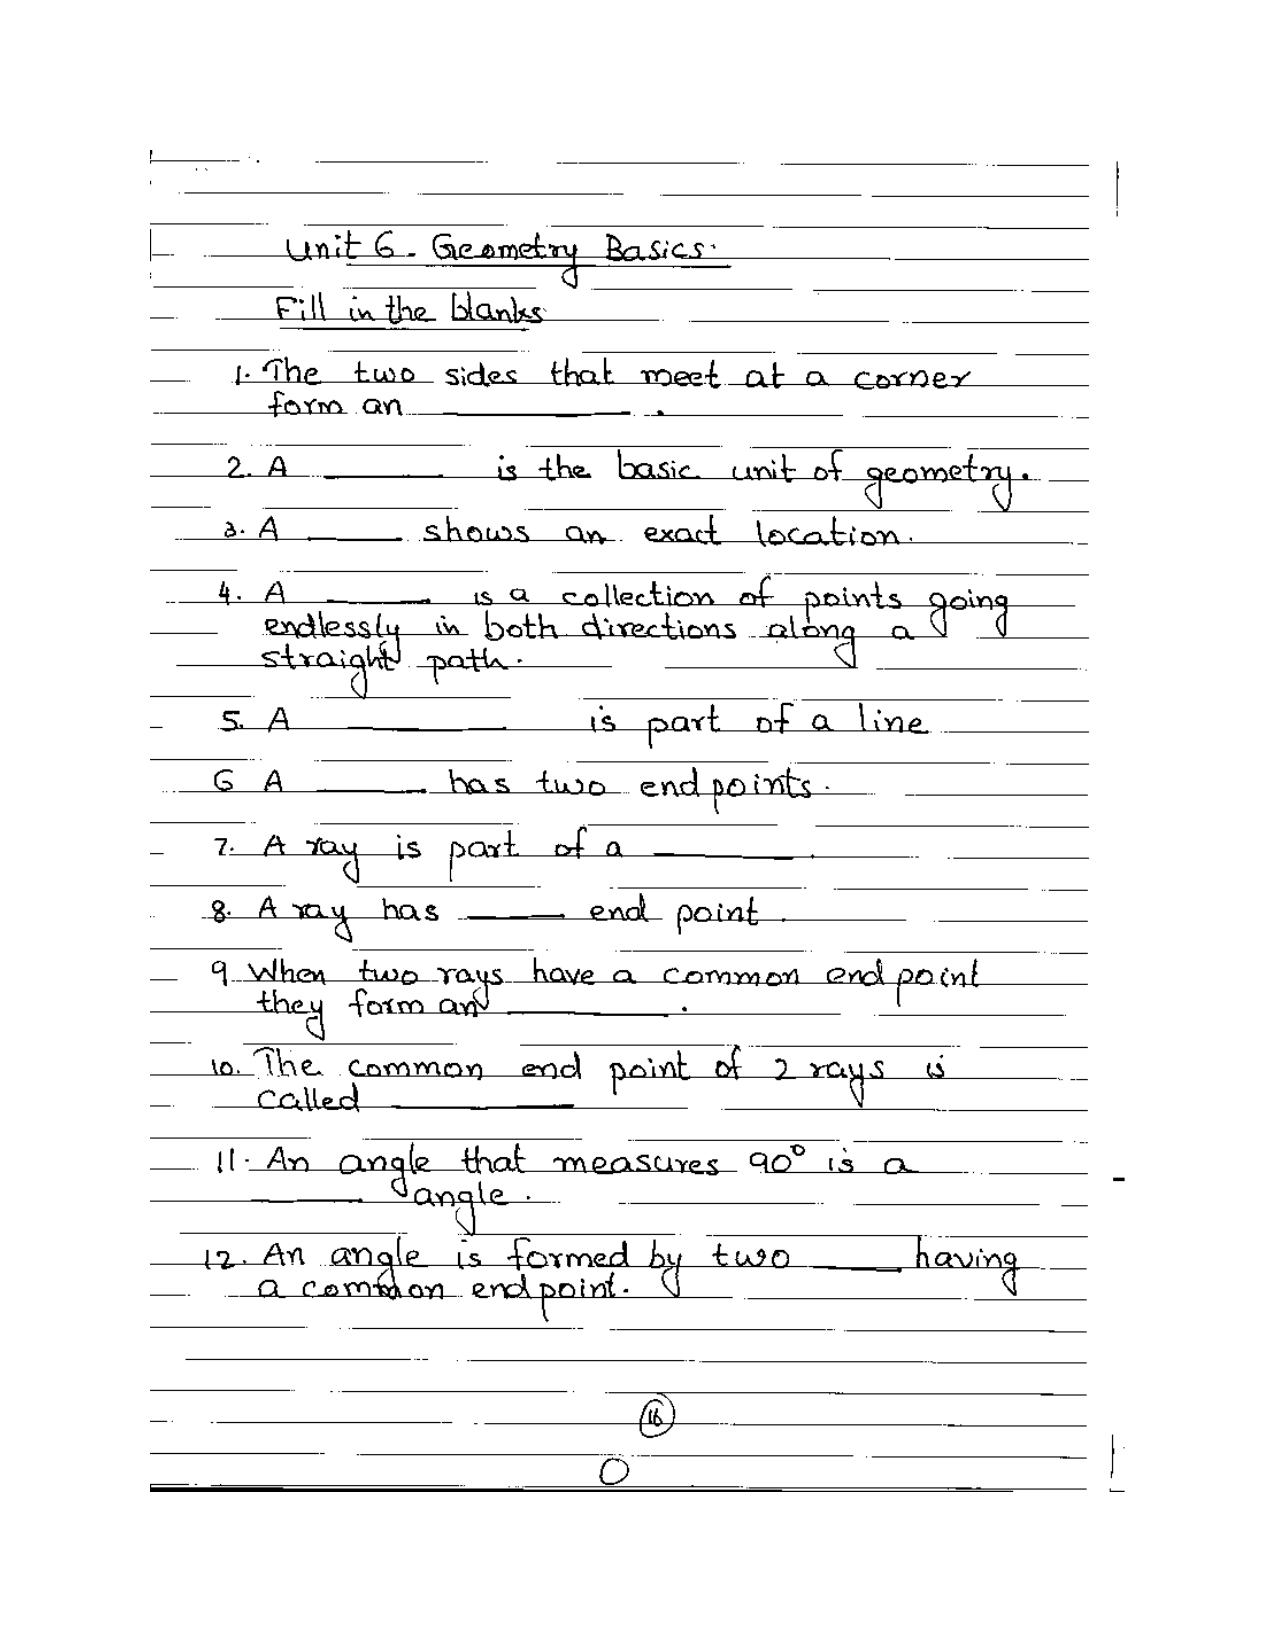 Unit 6 - Geometry Basics.
Fill in the blanks
1. The two sides that meet at a corner
form an ________ .
2. A ________ is the basic unit of geometry.
3. A ________ shows an exact location.
4. A ________ is a collection of points going
endlessly in both directions along a
straight path.
5. A ________ is part of a line
6 A ________ has two end points.
7. A ray is part of a ________ .
8. A ray has ________ end point.
9 When two rays have a common end point
they form an ________ .
10. The common end point of 2 rays is
called ________
11. An angle that measures 90° is a
________ angle.
12. An angle is formed by two ____ having
a common end point.
16